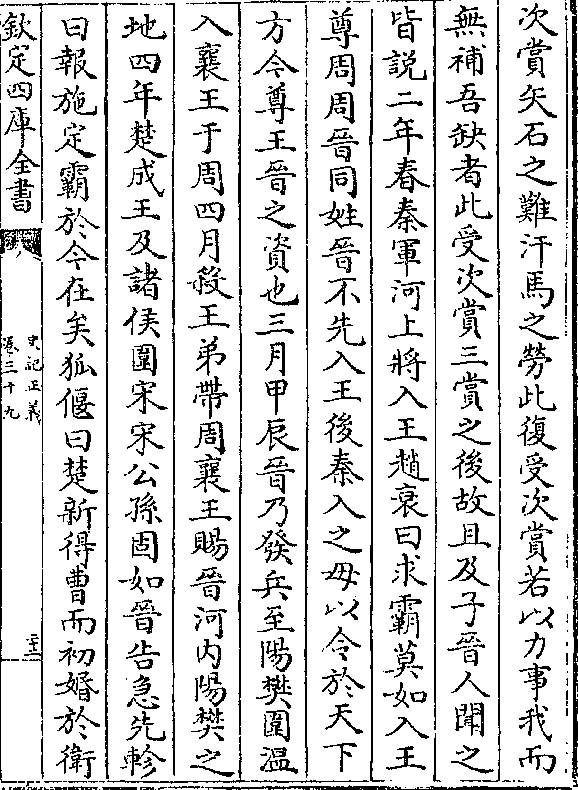 次賞矢石之難汗馬之勞此復受次賞若以力事我而
無補吾缺者此受次賞三賞之後故且及子晉人聞之
皆説二年春秦軍河上將入王趙衰曰求霸莫如入王
尊周周晉同姓晉不先入王後秦入之毋以令於天下
方今尊王晉之資也三月甲辰晉乃發兵至陽樊圍溫
入襄王于周四月殺王弟帶周襄王賜晉河内陽樊之
地四年楚成王及諸侯圍宋宋公孫固如晉告急先軫
曰報施定霸於今在矣狐偃曰楚新得曹而初婚於衛
欽定四庫全書
史記正義
卷三十九